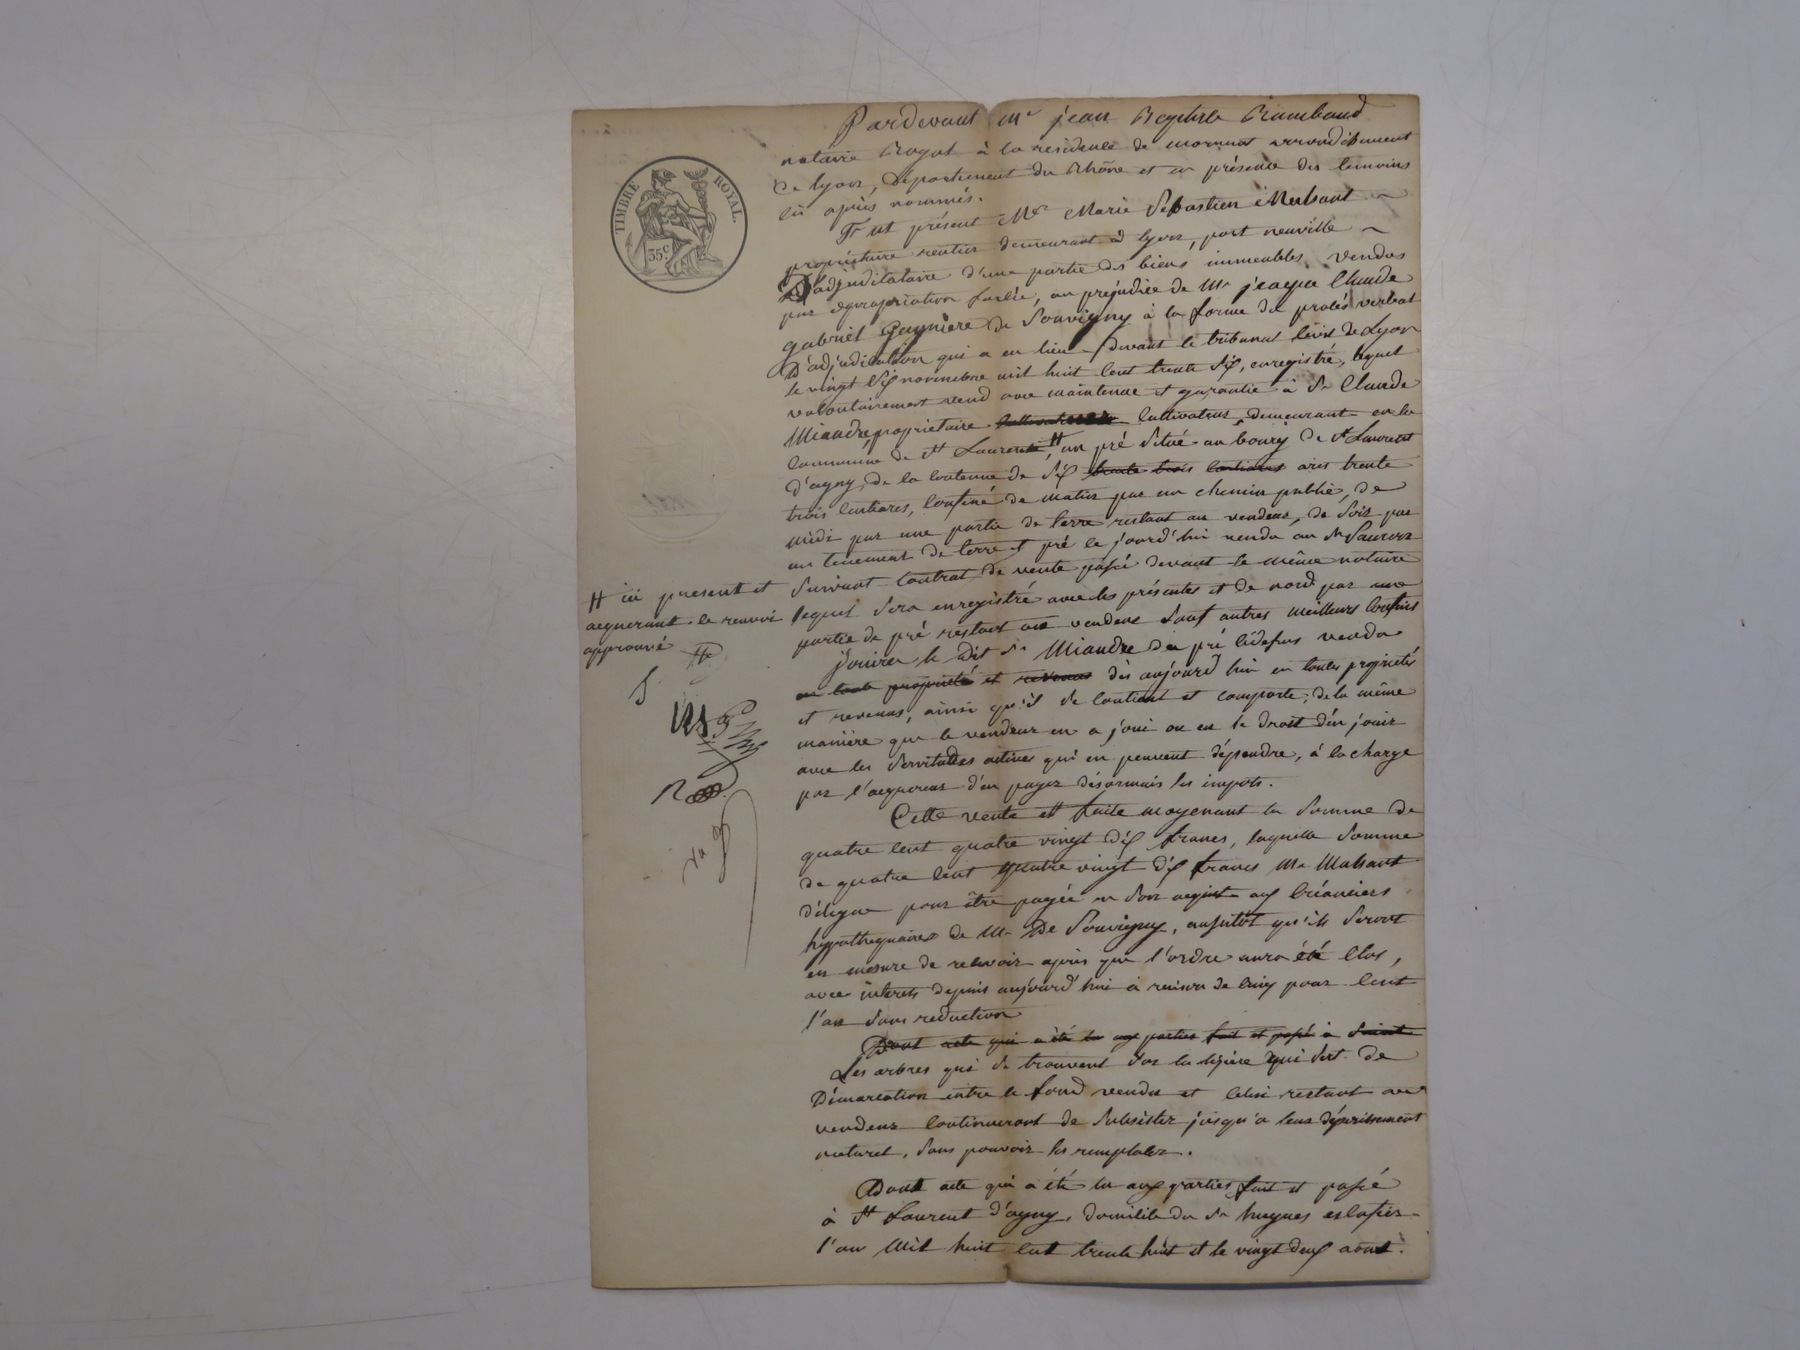 TIMBRE ROYAL.
35 c
Pardevant Me jean Baptiste Raimbaud
notaire Royal à la résidence de mornant arrondissement
de lyon, département du Rhône et en présence des temoins
ci après nommés.
Fut présent Mr Marie Sébastien
propriétaire rentier demeurant à lyon, port neuville
D'adjudicataire d'une partie des biens immeubles vendus
par expropriation forcée, au préjudice de Mr jacques Claude
gabriel de Souvigny à la forme du procès verbal
D'adjudication qui a eu lieu devant le tribunal civil de Lyon
le vingt Six novembre mil huit Cent trente Six, enregistré, lequel
volontairement vend avec maintenue et garantie à Sr Claude
Miandre propriétaire cultivateur, demeurant en la
Commune de St Laurent # un pré Situé au bourg de St Laurent
d'agny, de la Contenue de Six trente trois Centiares ares trente
trois Centiares, Confiné de matin par un chemin public, de
midi par une partie de terre restant au vendeur, de Soir par
un tenement de terre et pré ce jourd'hui vendu au Sr
Suivant Contrat de vente passé devant le même notaire
lequel Sera enregistré avec les présentes et de nord par une
partie de pré restant au vendeur Sauf autres meilleurs Confins
# ici présent et
acquerant le renvoi
approuvé
Jouira le dit Sr Miandre du pré Cidessus vendu
en toute propriété et revenus dès aujourd'hui en toutes propriétés
et revenus, ainsi qu'il Se Contient et comporte; de la même
manière que le vendeur en a joui ou eu le droit d'en jouir
avec les Servitudes actives qui en peuvent dépendre, à la charge
par l'acquereur d'en payer désormais les impots.
Cette vente est faite moyenant la Somme de
quatre Cent quatre vingt dix francs, laquelle Somme
de quatre Cent quatre vingt dix francs Mr
délègue pour être payée en Son acquit aux Créanciers
hypothequaires de Mr De Souvigny, aussitot qu'ils Seront
en mesure de recevoir après que l'ordre aura été Clos,
avec interets depuis aujourd'hui à raison de Cinq pour Cent
l'an Sans reduction
Dont acte qui a été lu aux parties fait et passé à Saint
Les arbres qui Se trouvent Sur la lizière qui Sert de
Démarcation entre le fond vendu et Celui restant au
vendeur Continueront de Subsister jusqu'à leur dépérissement
naturel, Sans pouvoir les remplacer.
Dont acte qui a été lu aux parties, fait et passé
à St Laurent d'agny, domicile du Sr hugues
l'an Mil huit Cent trente huit et le vingt deux aout.